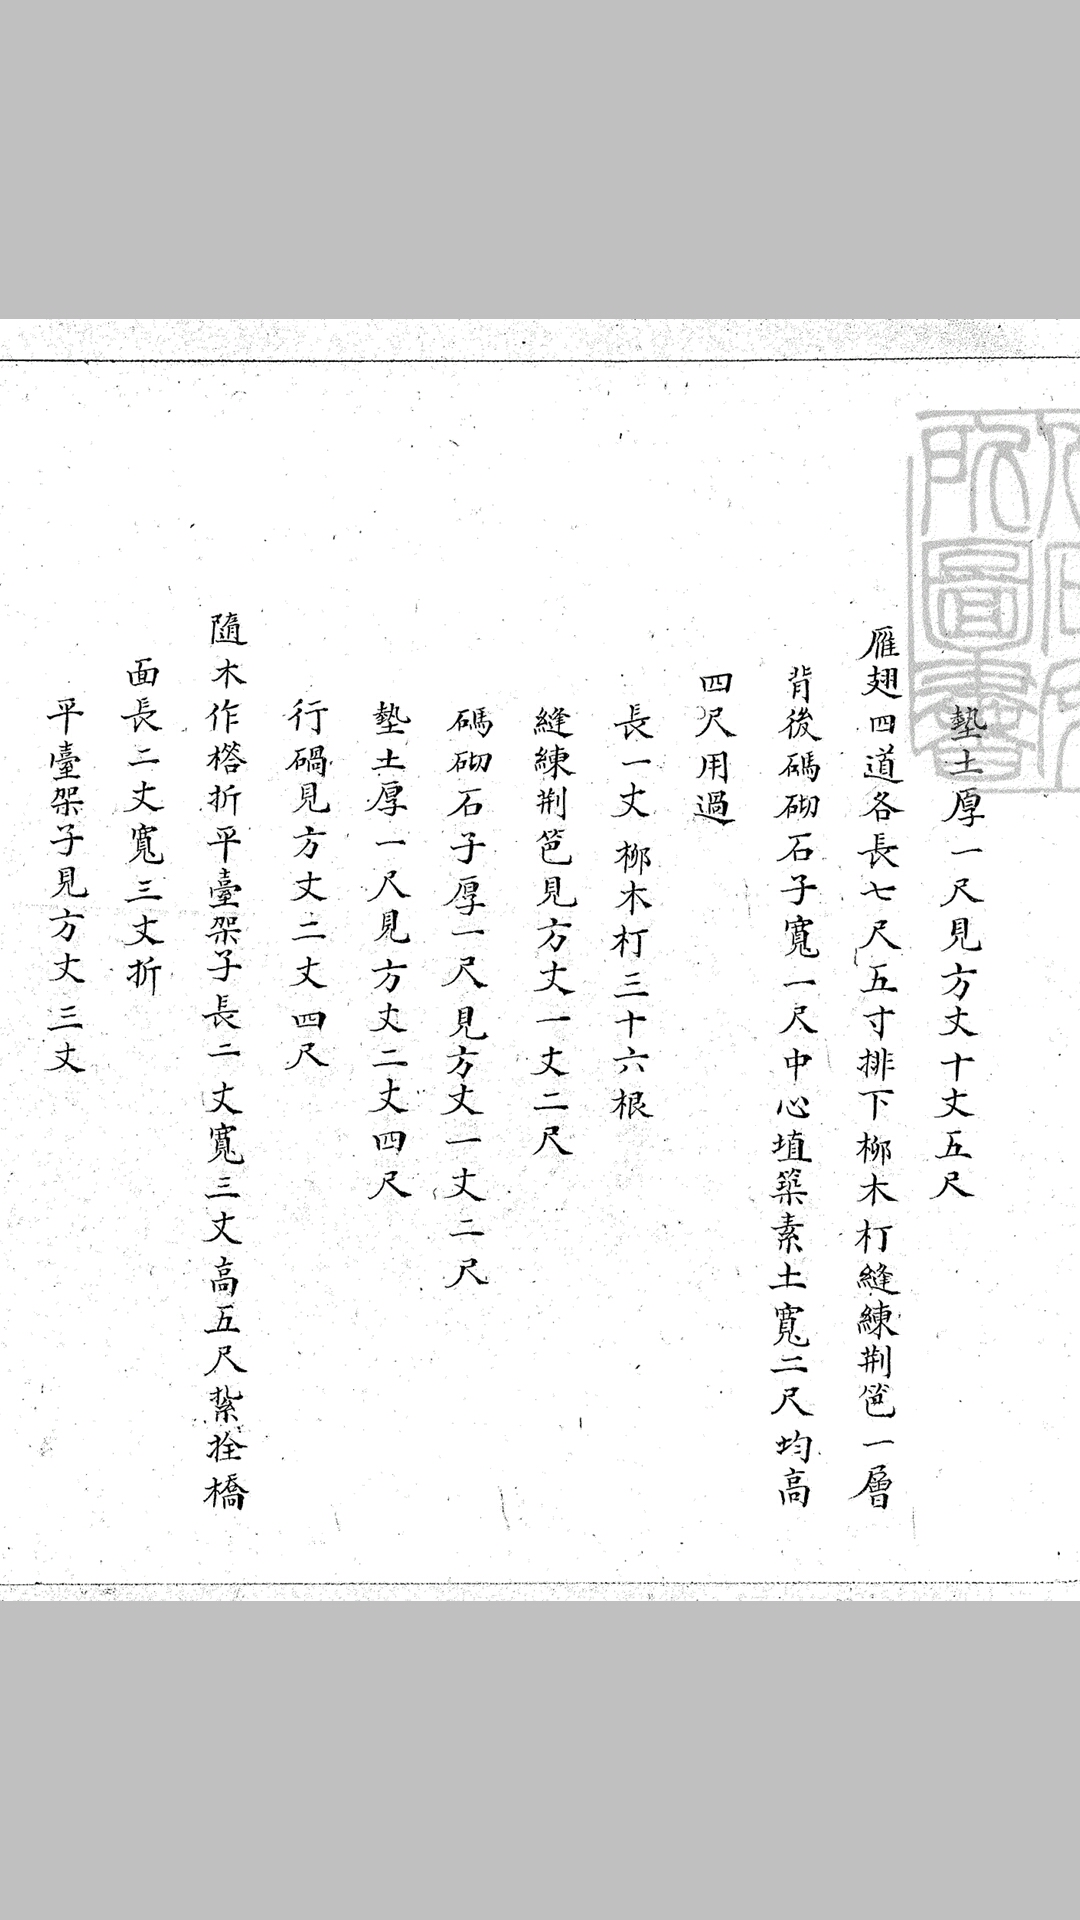 墊土厚一尺見方丈十丈五尺
雁翅四道各長七尺五寸排下柳木朾縫練荆笆一層
背後碼砌石子寬一尺中心埴築素土寬二尺均高
四尺用過
長一丈柳木朾三十六根
縫練荆笆見方丈一丈二尺
碼砌石子厚一尺見方丈一丈二尺
墊土厚一尺見方丈二丈四尺
行硝見方丈二丈四尺
隨木作搭折平臺架子長二丈寬三丈高五尺紮拴橋
面長二丈寬三丈折
平臺架子見方丈三丈
圖書